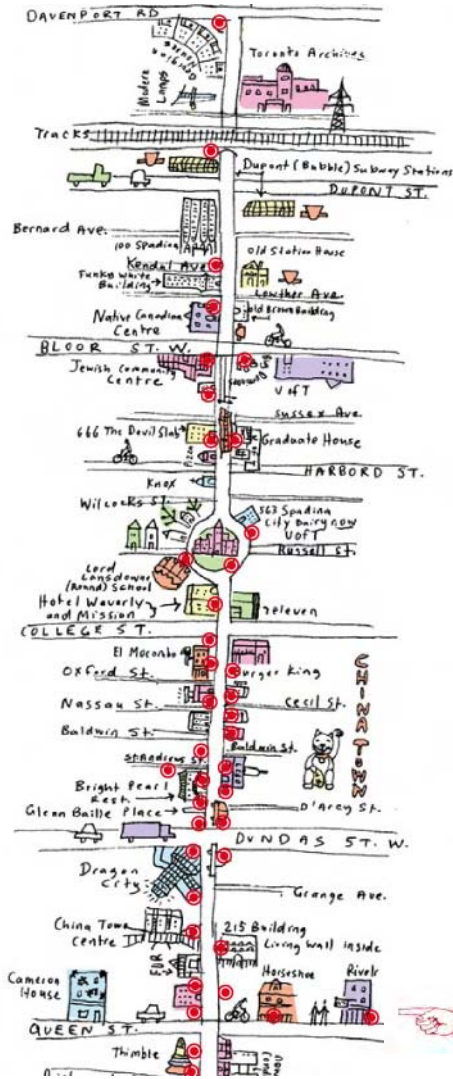 DAVENPORT RD
Toronto Archives
Tracks
Dupont (Bubble) Subway Stations
DUPONT ST.
Bernard Ave.
100 Spadina
Old Station House
Kendal Ave
Funky White
Building
Lowther Ave.
Native Canadian
Centre
Old Brown Building
BLOOR ST. W.
Jewish Community
Centre
U of T
Sussex Ave.
666 The Devil Slab
Graduate House
Pizza
HARBORD ST.
Knox
Wilcocks St.
563 Spadina
City Dairy now
U of T
Russell St.
Lord
Lansdowne
(Round) School
Hotel Waverly
and Mission
7eleven
COLLEGE ST.
El Mocambo
Burger King
Oxford St.
CHINA TOWN
Nassau St.
Cecil St.
Baldwin St.
Baldwin St.
St Andrews St.
Bright Pearl
Rest.
Glenn Baille Place
D'Arcy St.
DUNDAS ST. W.
Dragon
City
Grange Ave.
China Town
Centre
215 Building
Living wall inside
FUR
Cameron
House
Horseshoe
Rivoli
QUEEN ST.
Thimble